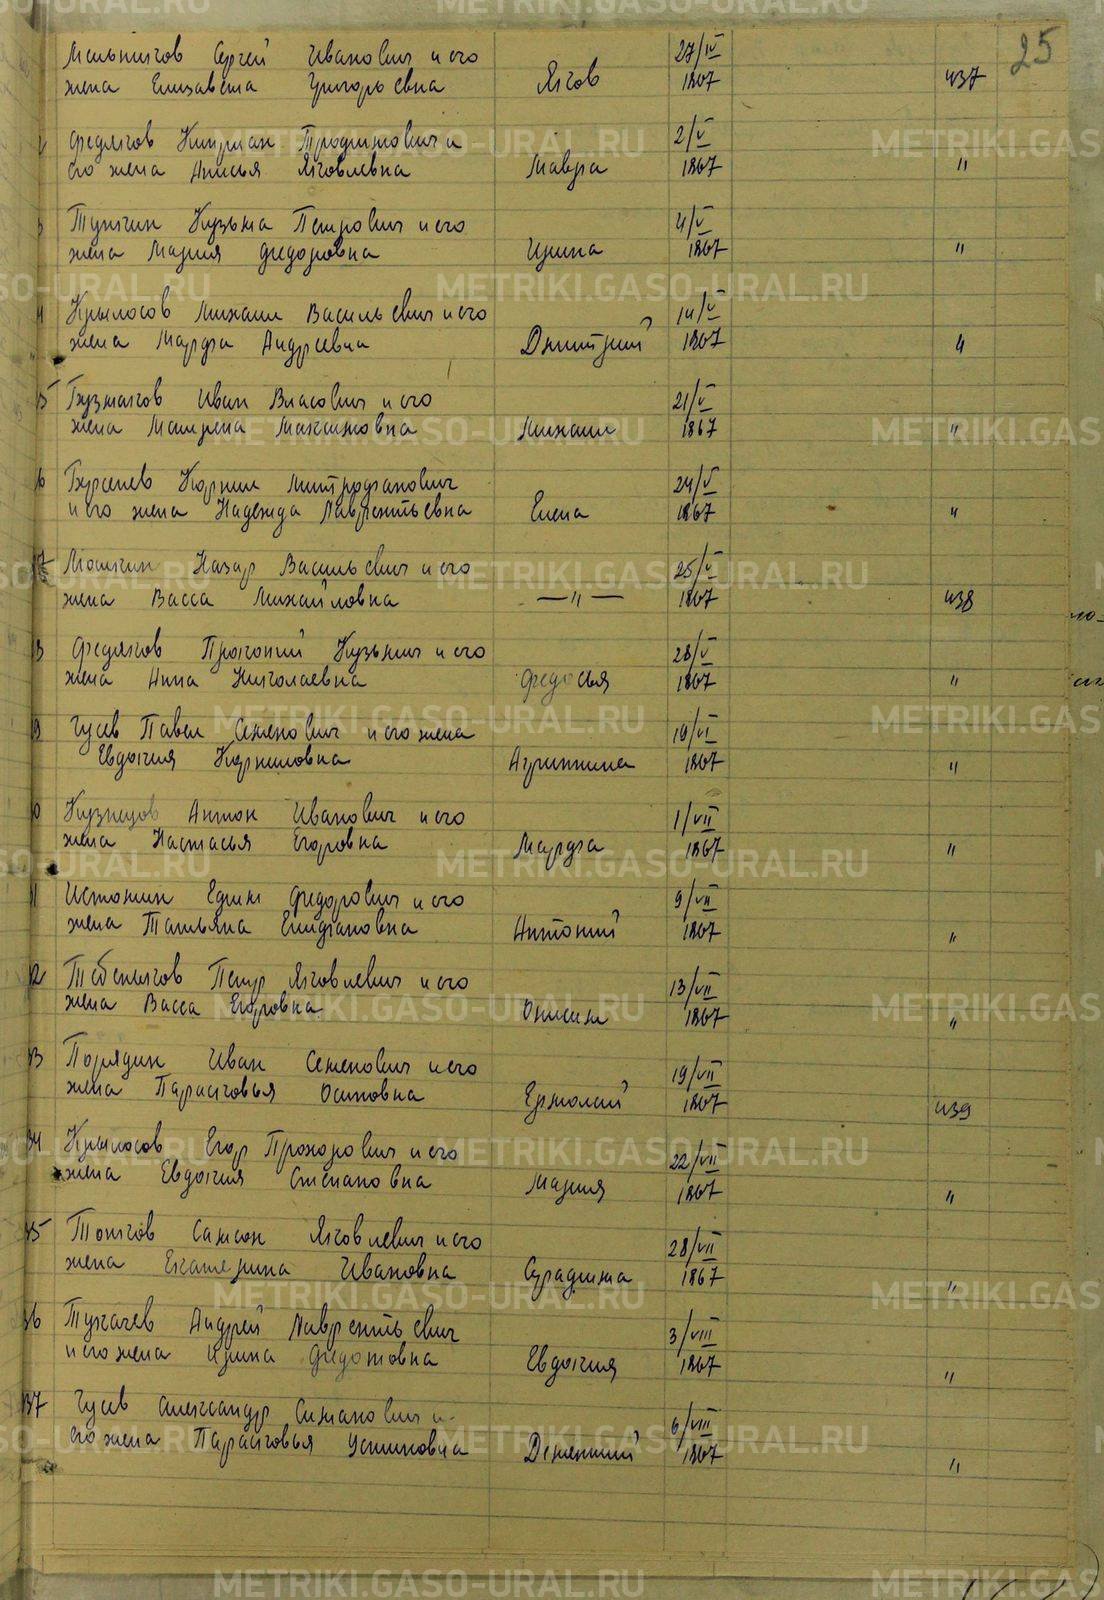 25
Мельников Сергей Иванович и его
жена Елизавета Григорьевна Яков 27/IV 1867 437
Федяков Киприан Трофимович и
его жена Анисья Яковлевна Мавра 2/V 1867 "
Тункин Кузьма Петрович и его
жена Мария Федоровна Ирина 4/V 1867 "
Крылосов Михаил Васильевич и его
жена Марфа Андреевна Дмитрий 14/V 1867 "
Бузмаков Иван Власович и его
жена Матрена Максимовна Михаил 21/V 1867 "
6 Бурсенев Корнил Митрофанович
и его жена Надежда Лаврентьевна Елена 24/V 1867 "
Мошкин Назар Васильевич и его
жена Васса Михайловна —"— 25/V 1867 438
Федяков Прокопий Кузьмич и его
жена Анна Николаевна Федосья 28/V 1867 "
Гусев Павел Семенович и его жена
Евдокия Корниловна Агриппина 16/VI 1867 "
Кузнецов Антон Иванович и его
жена Настасья Егоровна Марфа 1/VII 1867 "
Истомин Едим Федорович и его
жена Татьяна Епифановна Антоний 9/VII 1867 "
Тебеньков Петр Яковлевич и его
жена Васса Егоровна Онисим 13/VII 1867 "
Порядин Иван Семенович и его
жена Парасковья Осиповна Ермолай 19/VII 1867 439
34 Крылосов Егор Прохорович и его
жена Евдокия Степановна Мария 22/VII 1867 "
35 Тонков Самсон Яковлевич и его
жена Екатерина Ивановна Серафима 28/VII 1867 "
36 Тукачев Андрей Лаврентьевич
и его жена Ирина Федотовна Евдокия 3/VIII 1867 "
37 Гусев Александр Симанович и
его жена Парасковья Устиновна Дементий 6/VIII 1867 "
METRIKI.GASO-URAL.RU